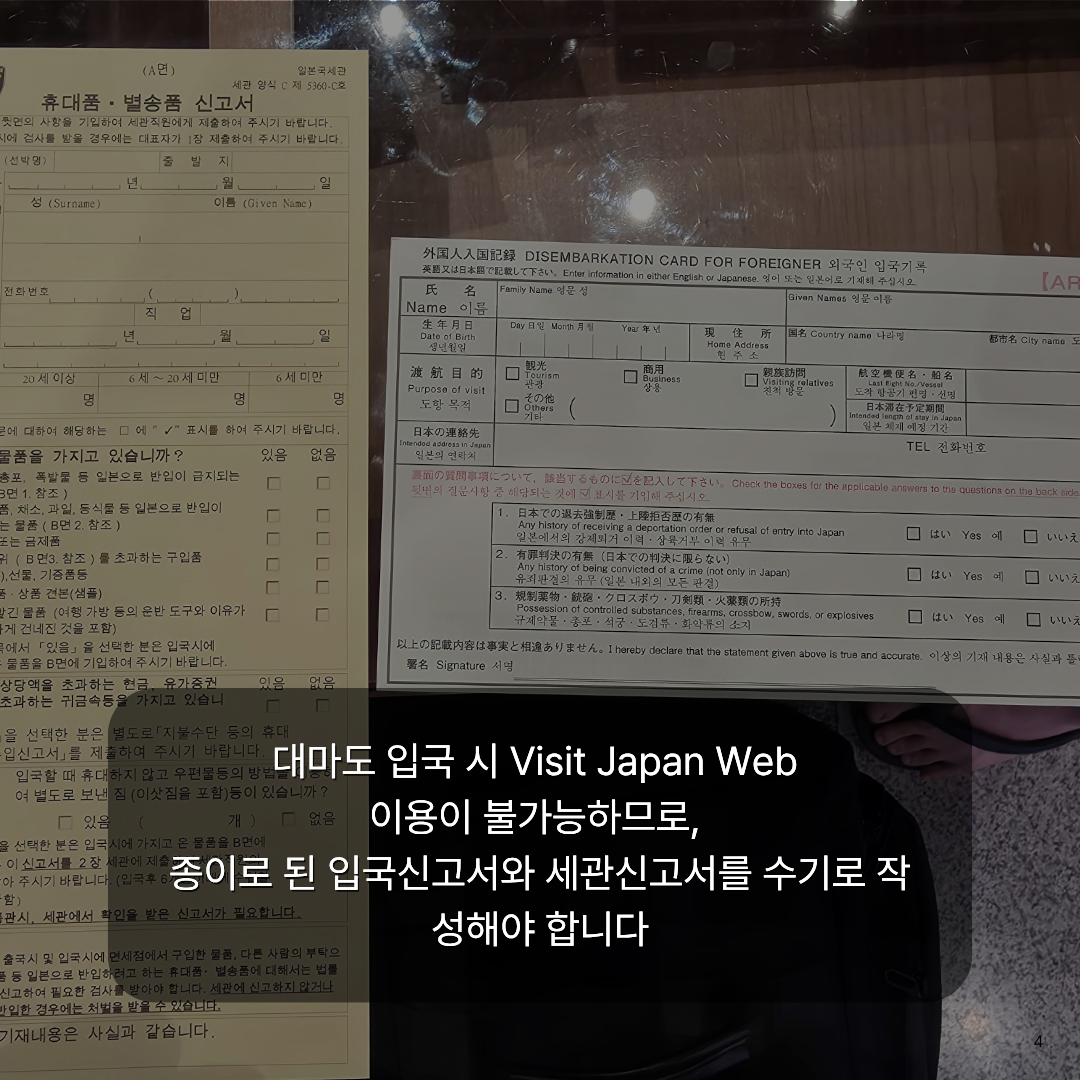 (A면)
일본국세관
세관 양식 C 제 5360-C호
휴대품・별송품 신고서
뒷면의 사항을 기입하여 세관직원에게 제출하여 주시기 바랍니다.
시에 검사를 받을 경우에는 대표자가 1장 제출하여 주시기 바랍니다.
(선박명) 출 발 지
년 월 일
성 (Surname) 이름 (Given Name)
전화번호 ( )
직 업
년 월 일
20세이상 6세~20세미만 6세미만
명 명 명
문에 대하여 해당하는 □ 에 "✓" 표시를 하여 주시기 바랍니다.
물품을 가지고 있습니까? 있음 없음
총포, 폭발물 등 일본으로 반입이 금지되는
B면 1. 참조 )
품, 채소, 과일, 동식물 등 일본으로 반입이
는 물품 ( B면 2. 참조 )
또는 금제품
위 ( B면3. 참조 ) 를 초과하는 구입품
),선물, 기증품등
품・상품 견본(샘플)
맡긴 물품 (여행 가방 등의 운반 도구와 이유가
하게 건네진 것을 포함)
목에서 「있음」을 선택한 분은 입국시에
물품을 B면에 기입하여 주시기 바랍니다.
상당액을 초과하는 현금, 유가증권 있음 없음
초과하는 귀금속등을 가지고 있습니
을 선택한 분은 별도로「지불수단 등의 휴대
수입신고서」를 제출하여 주시기 바랍니다.
입국할 때 휴대하지 않고 우편물등의 방법을
여 별도로 보낸 짐 (이삿짐을 포함)등이 있습니까?
□ 있음 ( 개 ) □ 없음
을 선택한 분은 입국시에 가지고 온 물품을 B면에
이 신고서를 2장 세관에 제출
아 주시기 바랍니다. (입국후 6
함)
통관시, 세관에서 확인을 받은 신고서가 필요합니다.
출국시 및 입국시에 면세점에서 구입한 물품, 다른 사람의 부탁으
품 등 일본으로 반입하려고 하는 휴대품・별송품에 대해서는 법률
신고하여 필요한 검사를 받아야 합니다. 세관에 신고하지 않거나
반입한 경우에는 처벌을 받을 수 있습니다.
기재내용은 사실과 같습니다.
外国人入国記録 DISEMBARKATION CARD FOR FOREIGNER 외국인 입국기록
英語又は日本語で記載して下さい。Enter information in either English or Japanese. 영어 또는 일본어로 기재해 주십시오.
【AR
氏 名
Name 이름
Family Name 영문 성
Given Names 영문 이름
生年月日
Date of Birth
생년월일
Day 日 일 Month 月 월 Year 年 년
現 住 所
Home Address
현 주 소
国名 Country name 나라명
都市名 City name 도
渡航目的
Purpose of visit
도항 목적
□ 観光
Tourism
관광
□ 商用
Business
상용
□ 親族訪問
Visiting relatives
친척 방문
□ その他
Others
기타
( )
航空機便名・船名
Last flight No./Vessel
도착 항공기 편명・선명
日本滞在予定期間
Intended length of stay in Japan
일본 체재 예정 기간
日本の連絡先
Intended address in Japan
일본의 연락처
TEL 전화번호
裏面の質問事項について、該当するものに☑を記入して下さい。Check the boxes for the applicable answers to the questions on the back side.
뒷면의 질문사항 중 해당되는 것에 ☑ 표시를 기입해 주십시오.
1. 日本での退去強制歴・上陸拒否歴の有無
Any history of receiving a deportation order or refusal of entry into Japan
일본에서의 강제퇴거 이력・상륙거부 이력 유무
□ はい Yes 예 □ いいえ
2. 有罪判決の有無（日本での判決に限らない）
Any history of being convicted of a crime (not only in Japan)
유죄판결의 유무 (일본 내외의 모든 판결)
□ はい Yes 예 □ いいえ
3. 規制薬物・銃砲・クロスボウ・刀剣類・火薬類の所持
Possession of controlled substances, firearms, crossbow, swords, or explosives
규제약물・총포・석궁・도검류・화약류의 소지
□ はい Yes 예 □ いいえ
以上の記載内容は事実と相違ありません。I hereby declare that the statement given above is true and accurate. 이상의 기재 내용은 사실과 틀
署名 Signature 서명
대마도 입국 시 Visit Japan Web
이용이 불가능하므로,
종이로 된 입국신고서와 세관신고서를 수기로 작
성해야 합니다
4